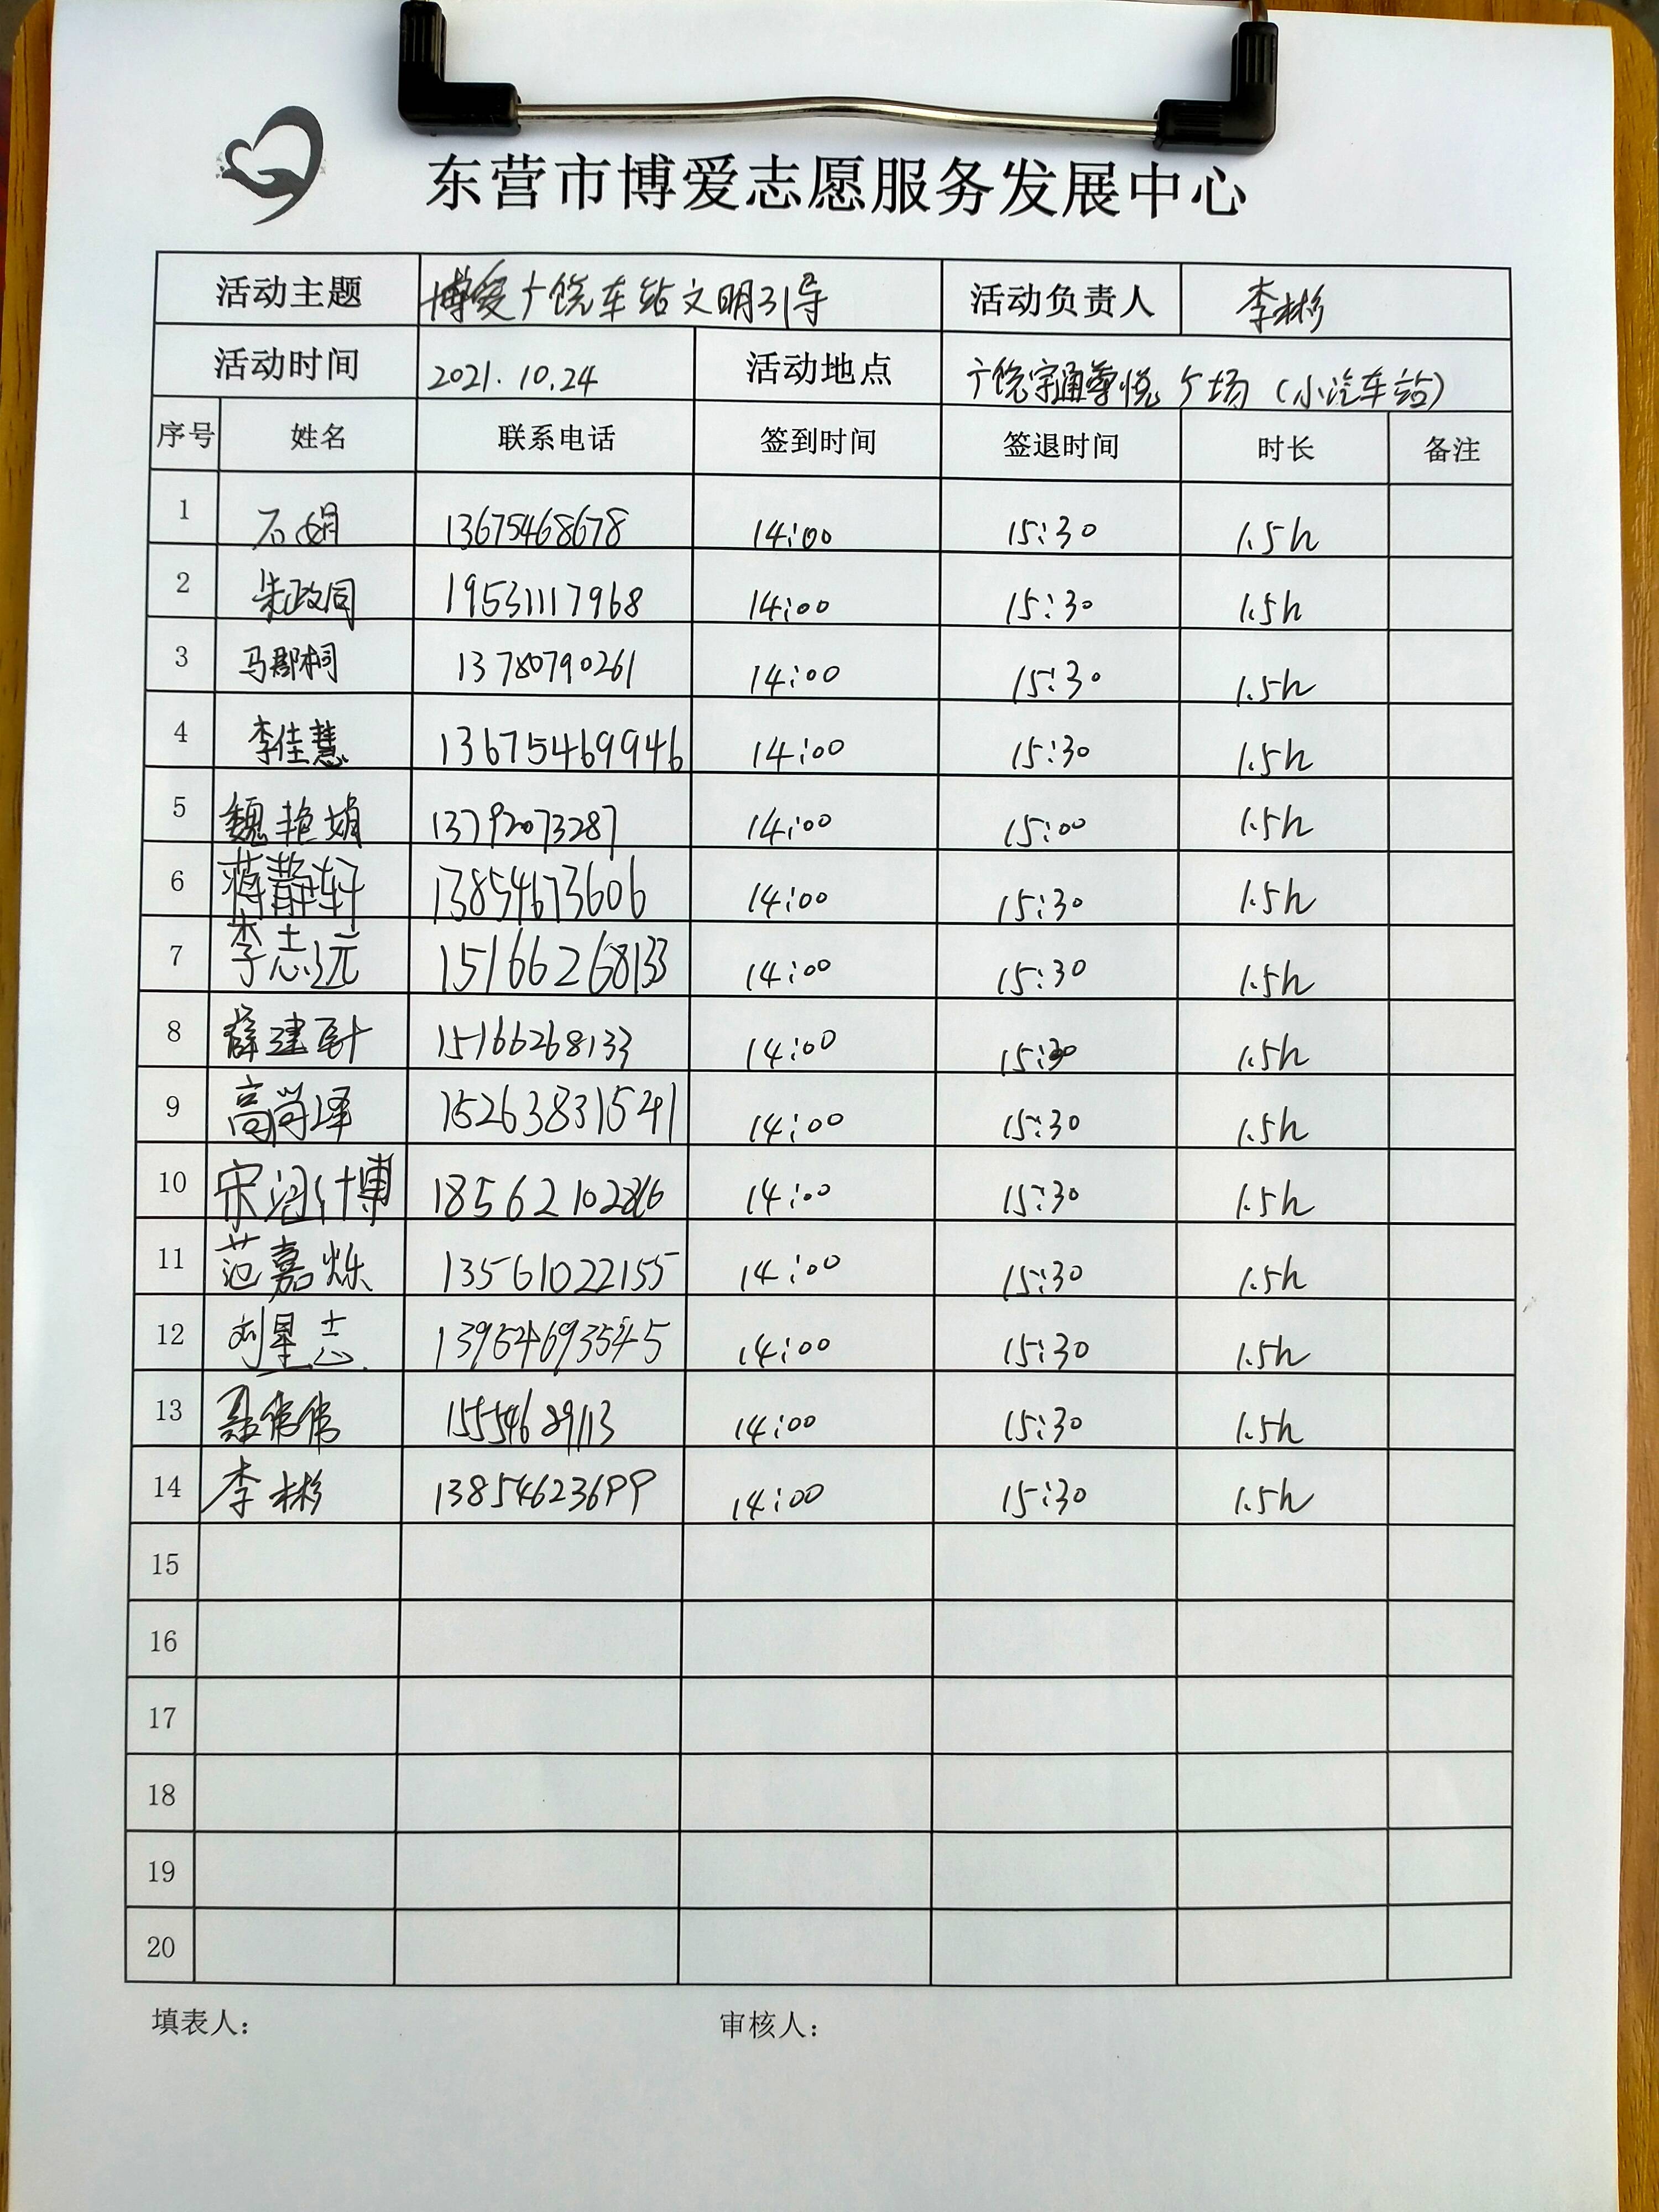 东营市博爱志愿服务发展中心
活动主题 博爱广饶车站文明引导 活动负责人 李彬
活动时间 2021.10.24 活动地点 广饶宇通尊悦广场(小汽车站)
序号 姓名 联系电话 签到时间 签退时间 时长 备注
1 石娟 13675468678 14:00 15:30 1.5h
2 朱政同 19531117968 14:00 15:30 1.5h
3 马郡桐 13780790261 14:00 15:30 1.5h
4 李佳慧 13675469946 14:00 15:30 1.5h
5 魏艳娟 13792073287 14:00 15:00 1.5h
6 蒋静轩 13854673606 14:00 15:30 1.5h
7 李志远 15166268133 14:00 15:30 1.5h
8 薛建 15166268133 14:00 15:30 1.5h
9 高尚泽 15263831541 14:00 15:30 1.5h
10 宋 博 14:00 15:30 1.5h
11 范嘉烁 13561022155 14:00 15:30 1.5h
12 刘星志 13954693545 14:00 15:30 1.5h
13 聂伟伟 15554689113 14:00 15:30 1.5h
14 李彬 13854623699 14:00 15:30 1.5h
15
16
17
18
19
20
填表人: 审核人: